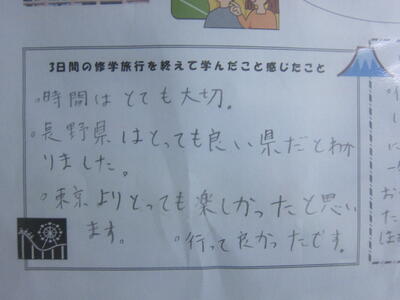 3日間の修学旅行を終えて学んだこと感じたこと
○時間はとても大切。
○長野県はとっても良い県だとわか
りました。
○東京よりとっても楽しかったと思い
ます。 ○行って良かったです。